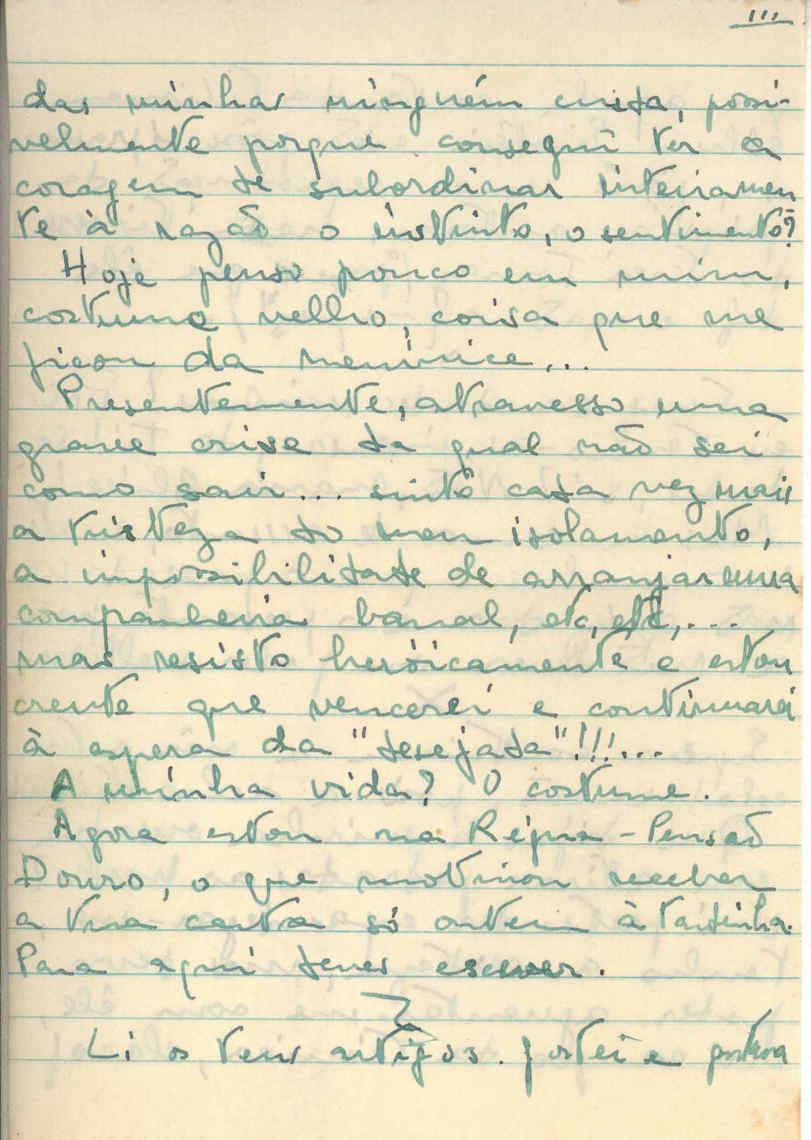 III
das minhas ninguém cuida, possi-
velmente porque conseguí ter a
coragem de subordinar inteiramen
te à razão o instinto, o sentimento?
Hoje penso pouco em mim,
costume velho, coisa que me
ficou da meninice...
Presentemente, atravesso uma
grave crise da qual não sei
como sair... sinto cada vez mais
a tristeza do meu isolamento,
a impossibilidade de arranjar uma
companheira banal, etc, etc,...
mas resisto heròicamente e estou
crente que vencerei e continuarei
à espera da "desejada"!!!...
A minha vida? O costume.
Agora estou na Régua - Pensão
Douro, o que motivou receber
a tua carta só ontem à tardinha.
Para aqui deves escrever.
Li os teus artigos. Gostei e gostava